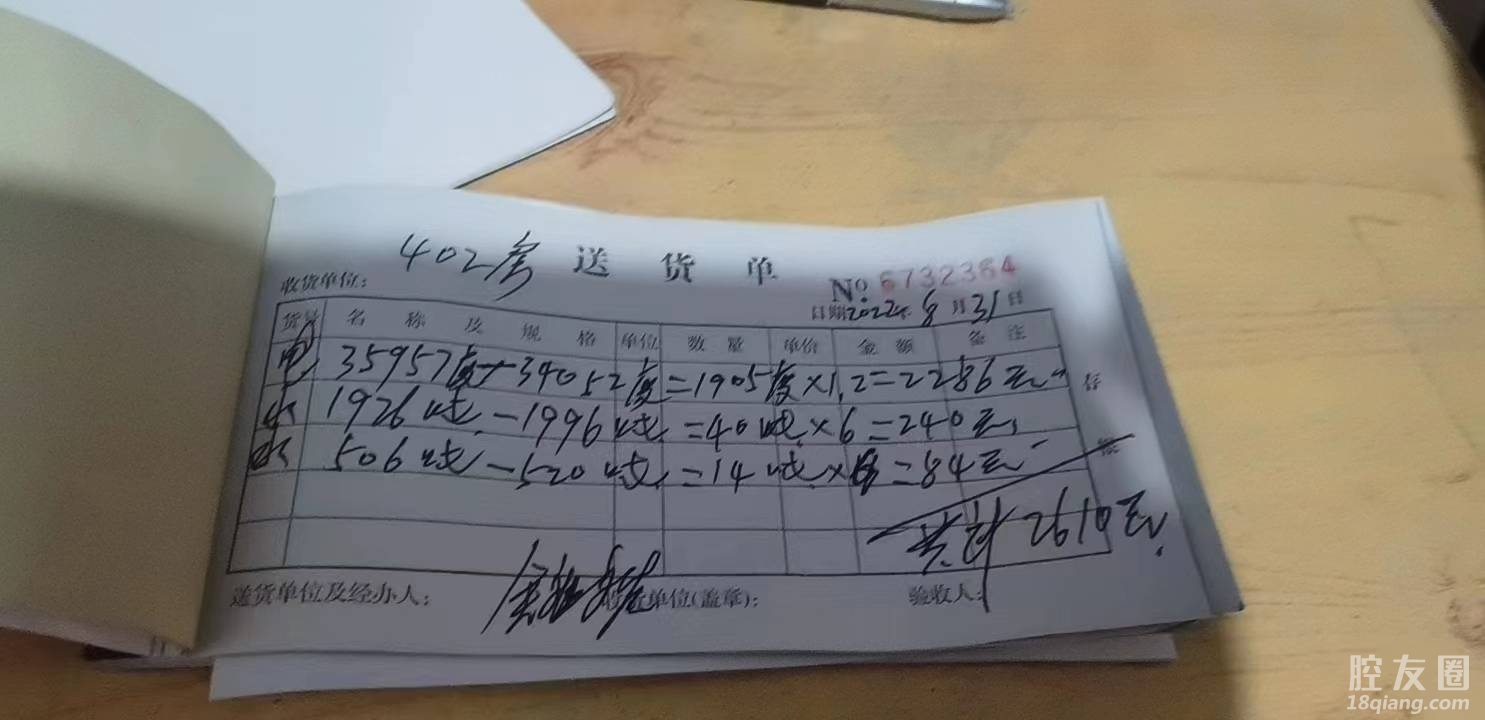 402房 送货单
收货单位:
No. 6732364
日期2022年 8月31日
货号 名称及规格 单位 数量 单价 金额 备注
电 35957度-34052度=1905度×1.2=2286元
水 1926吨-1996吨=40吨×6=240元
水 506吨-520吨=14吨×6=84元
存
根
共计2610元
送货单位及经办人: 收货单位(盖章): 验收人:
腔友圈
18qiang.com